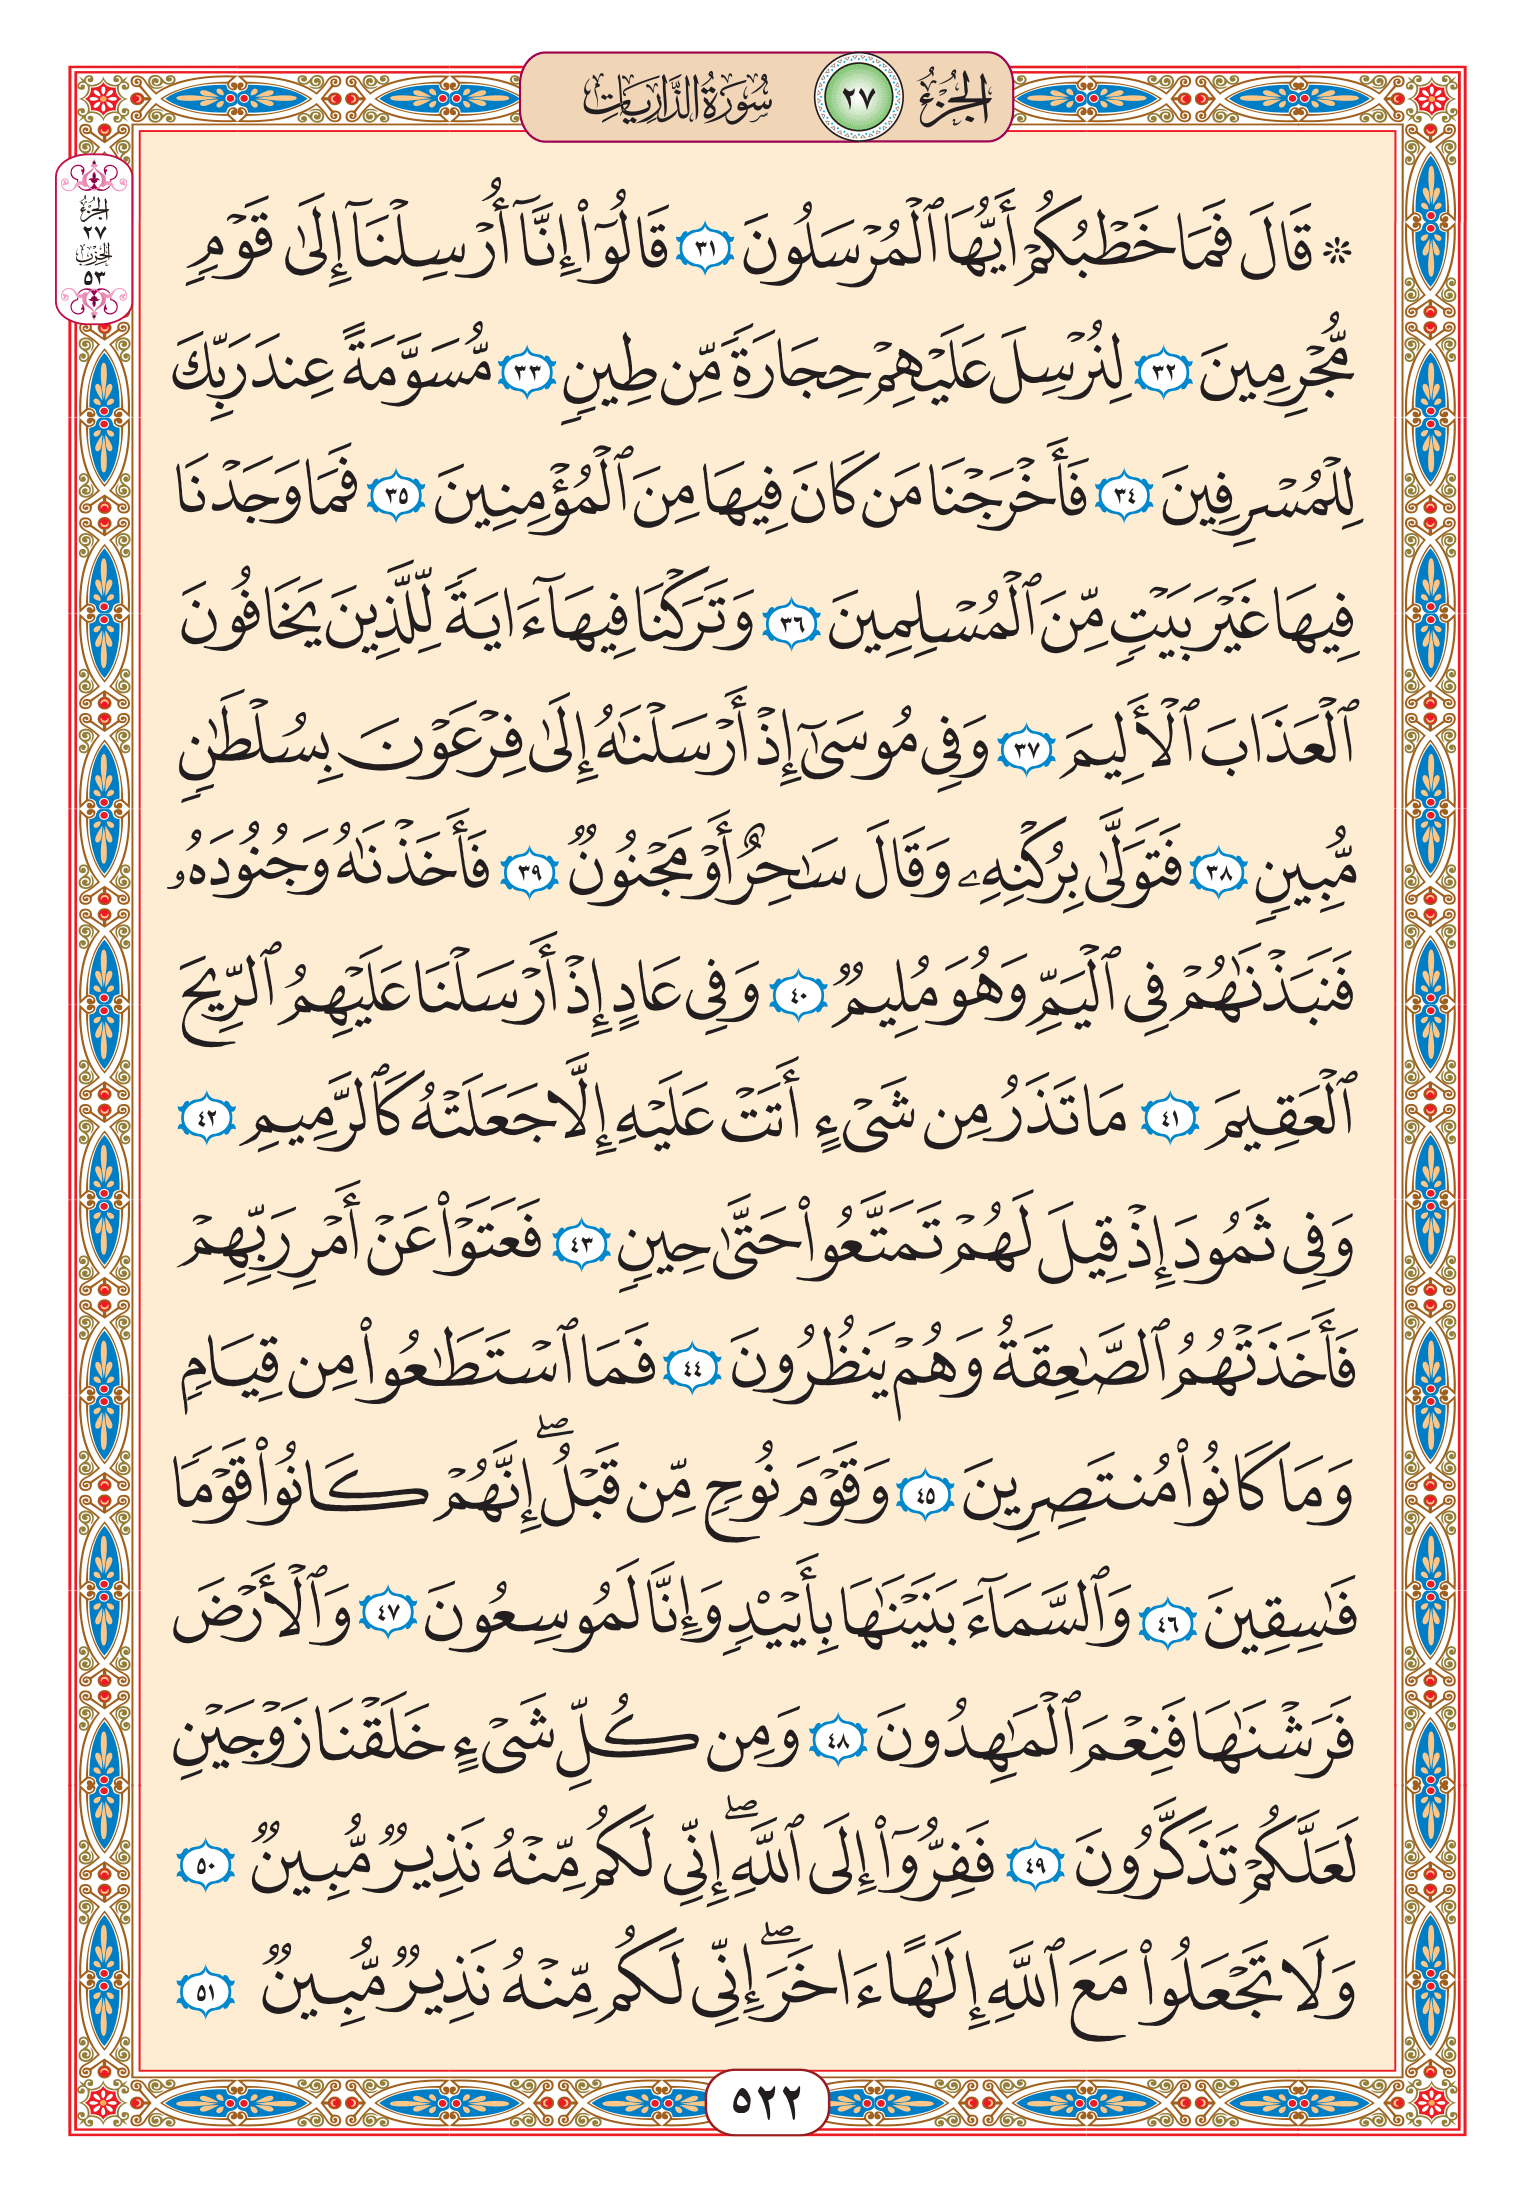 الجُزْءُ ٢٧ سُورَةُ الذَّارِيَاتِ
الجزء
٢٧
الحزب
٥٣
۞ قَالَ فَمَا خَطْبُكُمْ أَيُّهَا ٱلْمُرْسَلُونَ ٣١ قَالُوٓا۟ إِنَّآ أُرْسِلْنَآ إِلَىٰ قَوْمٍ
مُّجْرِمِينَ ٣٢ لِنُرْسِلَ عَلَيْهِمْ حِجَارَةً مِّن طِينٍ ٣٣ مُّسَوَّمَةً عِندَ رَبِّكَ
لِلْمُسْرِفِينَ ٣٤ فَأَخْرَجْنَا مَن كَانَ فِيهَا مِنَ ٱلْمُؤْمِنِينَ ٣٥ فَمَا وَجَدْنَا
فِيهَا غَيْرَ بَيْتٍ مِّنَ ٱلْمُسْلِمِينَ ٣٦ وَتَرَكْنَا فِيهَآ ءَايَةً لِّلَّذِينَ يَخَافُونَ
ٱلْعَذَابَ ٱلْأَلِيمَ ٣٧ وَفِى مُوسَىٰٓ إِذْ أَرْسَلْنَٰهُ إِلَىٰ فِرْعَوْنَ بِسُلْطَٰنٍ
مُّبِينٍ ٣٨ فَتَوَلَّىٰ بِرُكْنِهِۦ وَقَالَ سَٰحِرٌ أَوْ مَجْنُونٌ ٣٩ فَأَخَذْنَٰهُ وَجُنُودَهُۥ
فَنَبَذْنَٰهُمْ فِى ٱلْيَمِّ وَهُوَ مُلِيمٌ ٤٠ وَفِى عَادٍ إِذْ أَرْسَلْنَا عَلَيْهِمُ ٱلرِّيحَ
ٱلْعَقِيمَ ٤١ مَا تَذَرُ مِن شَىْءٍ أَتَتْ عَلَيْهِ إِلَّا جَعَلَتْهُ كَٱلرَّمِيمِ ٤٢
وَفِى ثَمُودَ إِذْ قِيلَ لَهُمْ تَمَتَّعُوا۟ حَتَّىٰ حِينٍ ٤٣ فَعَتَوْا۟ عَنْ أَمْرِ رَبِّهِمْ
فَأَخَذَتْهُمُ ٱلصَّٰعِقَةُ وَهُمْ يَنظُرُونَ ٤٤ فَمَا ٱسْتَطَٰعُوا۟ مِن قِيَامٍ
وَمَا كَانُوا۟ مُنتَصِرِينَ ٤٥ وَقَوْمَ نُوحٍ مِّن قَبْلُ ۖ إِنَّهُمْ كَانُوا۟ قَوْمًا
فَٰسِقِينَ ٤٦ وَٱلسَّمَآءَ بَنَيْنَٰهَا بِأَيْي۟دٍ وَإِنَّا لَمُوسِعُونَ ٤٧ وَٱلْأَرْضَ
فَرَشْنَٰهَا فَنِعْمَ ٱلْمَٰهِدُونَ ٤٨ وَمِن كُلِّ شَىْءٍ خَلَقْنَا زَوْجَيْنِ
لَعَلَّكُمْ تَذَكَّرُونَ ٤٩ فَفِرُّوٓا۟ إِلَى ٱللَّهِ ۖ إِنِّى لَكُم مِّنْهُ نَذِيرٌ مُّبِينٌ ٥٠
وَلَا تَجْعَلُوا۟ مَعَ ٱللَّهِ إِلَٰهًا ءَاخَرَ ۖ إِنِّى لَكُم مِّنْهُ نَذِيرٌ مُّبِينٌ ٥١
٥٢٢